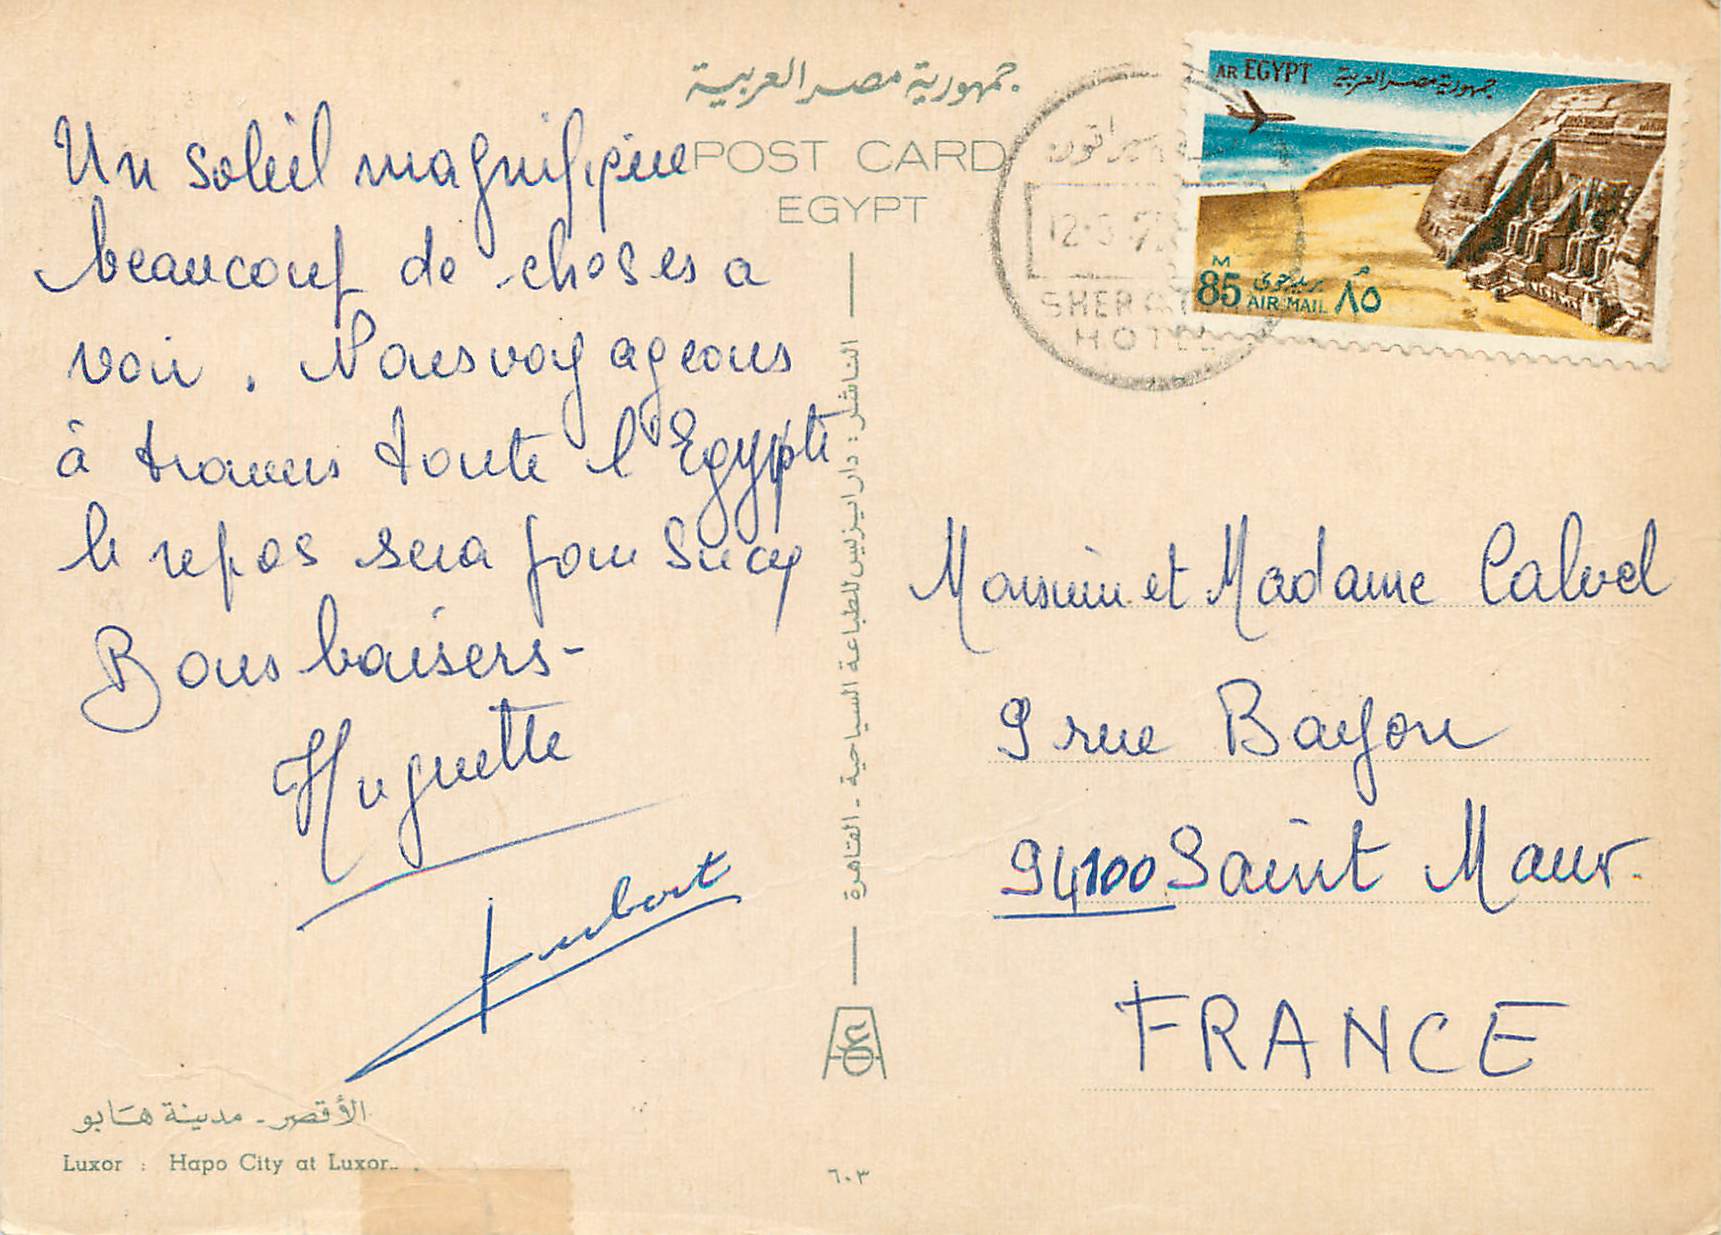 جمهورية مصر العربية
POST CARD
EGYPT
Un soleil magnifique
beaucoup de choses a
voir. Nous voyageons
à travers toute l'Egypte
le repos sera pour Sucy
Bons baisers-
Huguette
الأقصر - مدينة هابو
Luxor : Hapo City at Luxor.
الناشر : دار ايزيس للطباعة السياحية - القاهرة
٦٠٣
AR EGYPT جمهورية مصر العربية
M
85 بريد جوى ٨٥
AIR MAIL
شيراتون
SHERATON
HOTEL
Monsieur et Madame Calvel
9 rue Bayon
94100 Saint Maur.
FRANCE